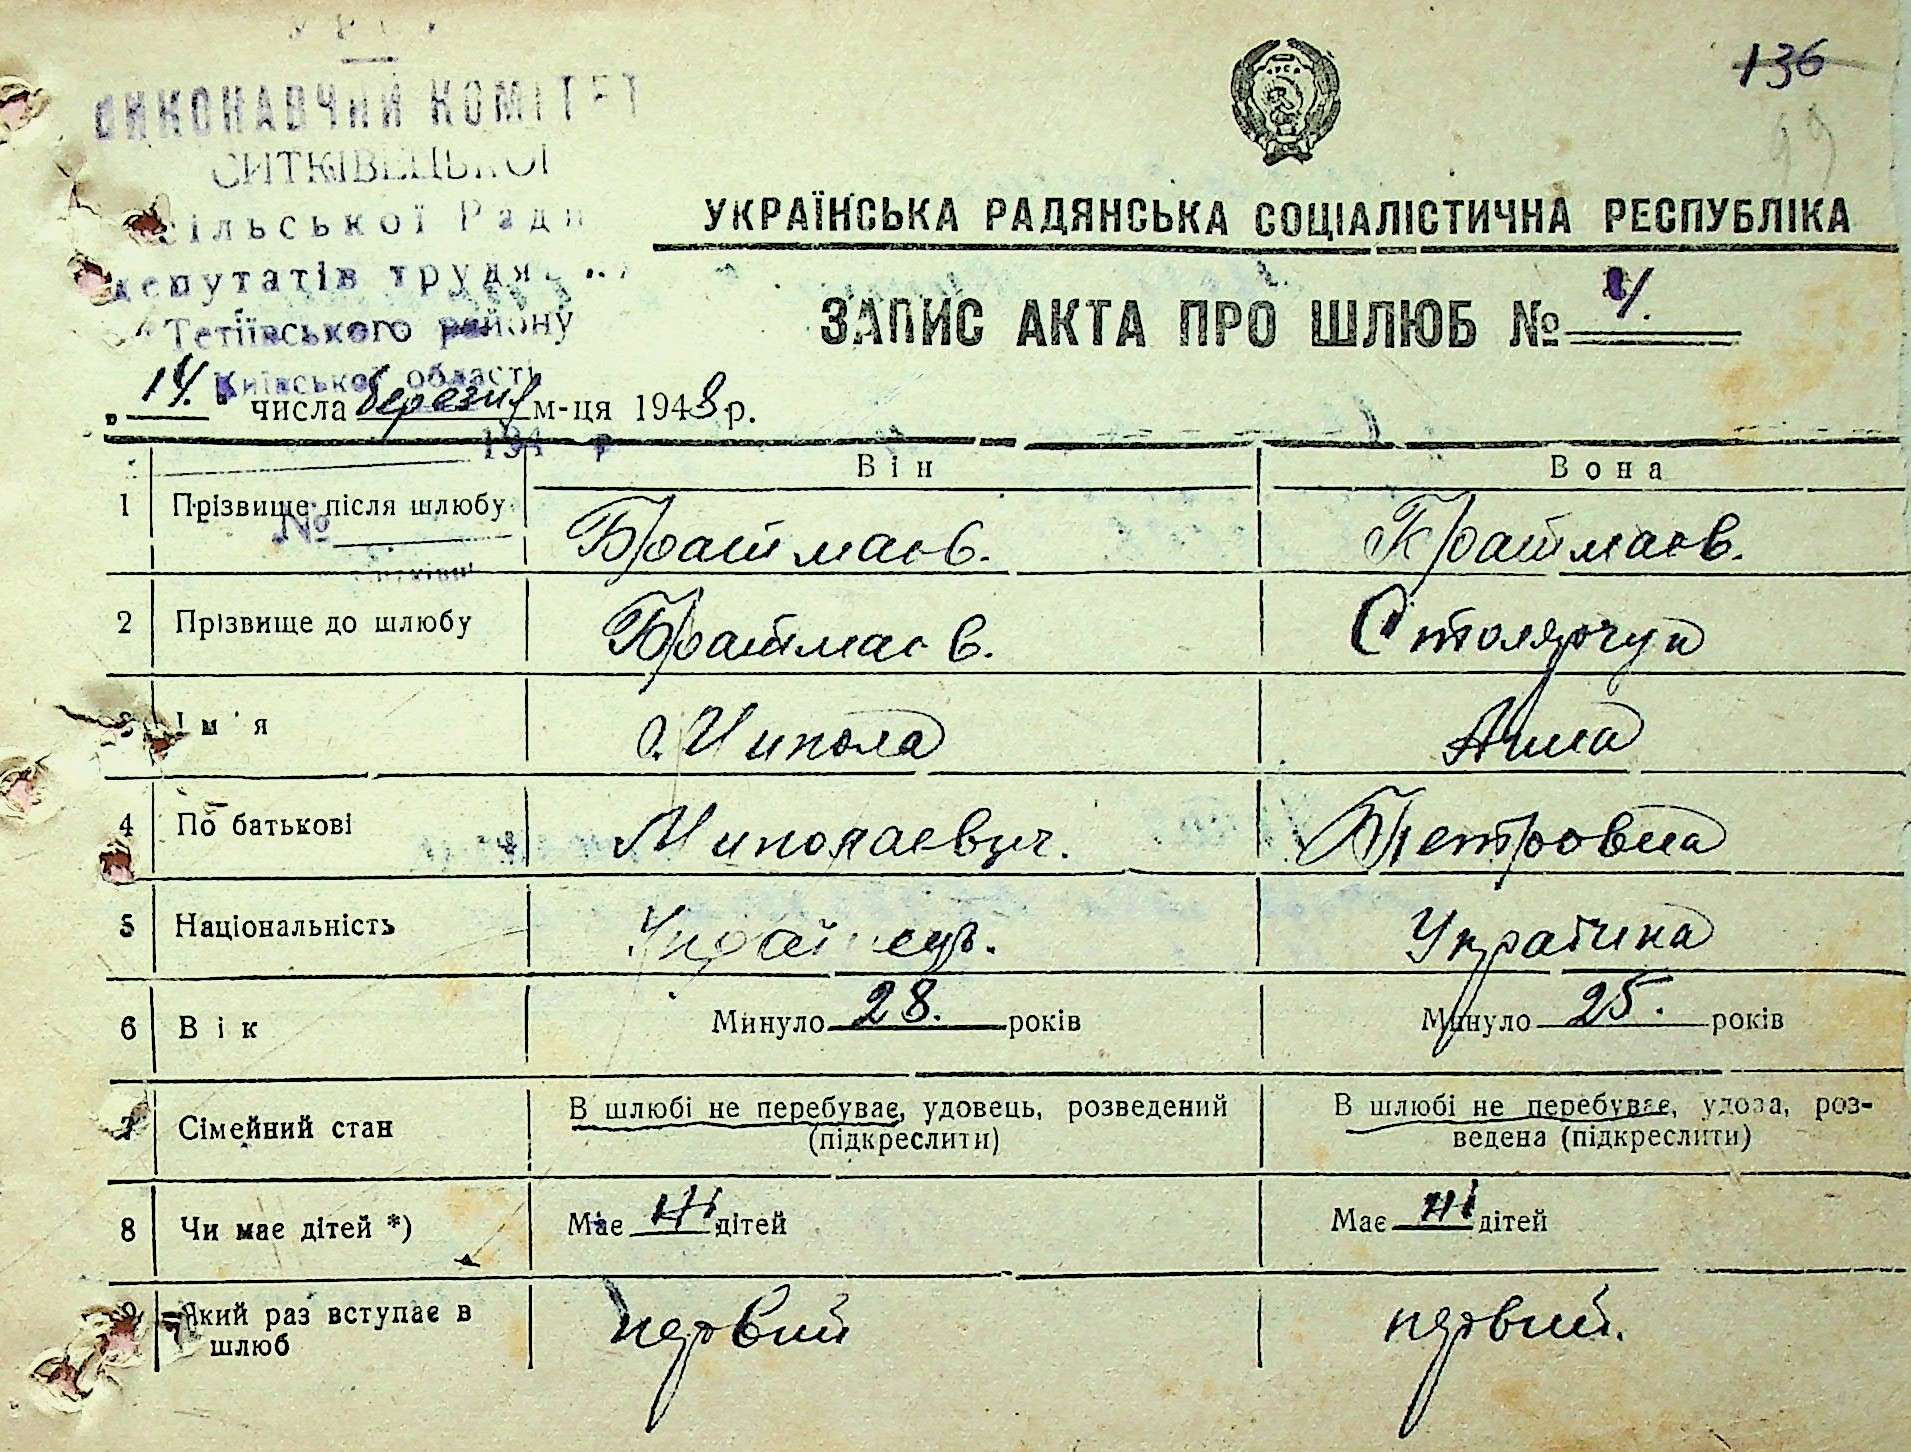 УРСР
ВИКОНАВЧИЙ КОМІТЕТ
СИТКІВЕЦЬКОЇ
сільської Ради
депутатів трудящих
Тетіївського району
Київської області
194 р
№
136
99
УКРАЇНСЬКА РАДЯНСЬКА СОЦІАЛІСТИЧНА РЕСПУБЛІКА
ЗАПИС АКТА ПРО ШЛЮБ № 4.
„14." числа березня м-ця 1948 р.
Він Вона
1 Прізвище після шлюбу
2 Прізвище до шлюбу Столярчук
3 Ім'я Микола Анна
4 По батькові Миколаевич. Петровна
5 Національність Українець. Українка
6 Вік Минуло 28. років Минуло 25. років
7 Сімейний стан В шлюбі не перебуває, удовець, розведений (підкреслити) В шлюбі не перебуває, удова, роз-
ведена (підкреслити)
8 Чи має дітей *) Має ні дітей Має ні дітей
9 Який раз вступає в
шлюб первий первий.